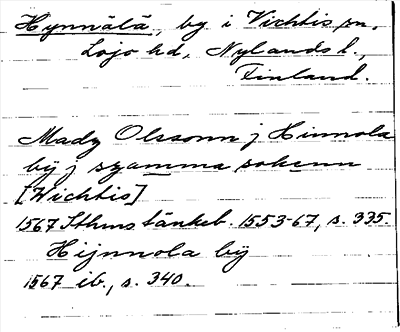 Hynnälä, by i Vichtis sn,
Lojo hd, Nylands l.,
Finland.
Mady Olssonn j Hinnola
byj j syamma sokenn
[Wichtis]
1567 Sthms tänkeb. 1553-67, s. 335.
Hijnnola bÿ
1567 ib., s. 340.